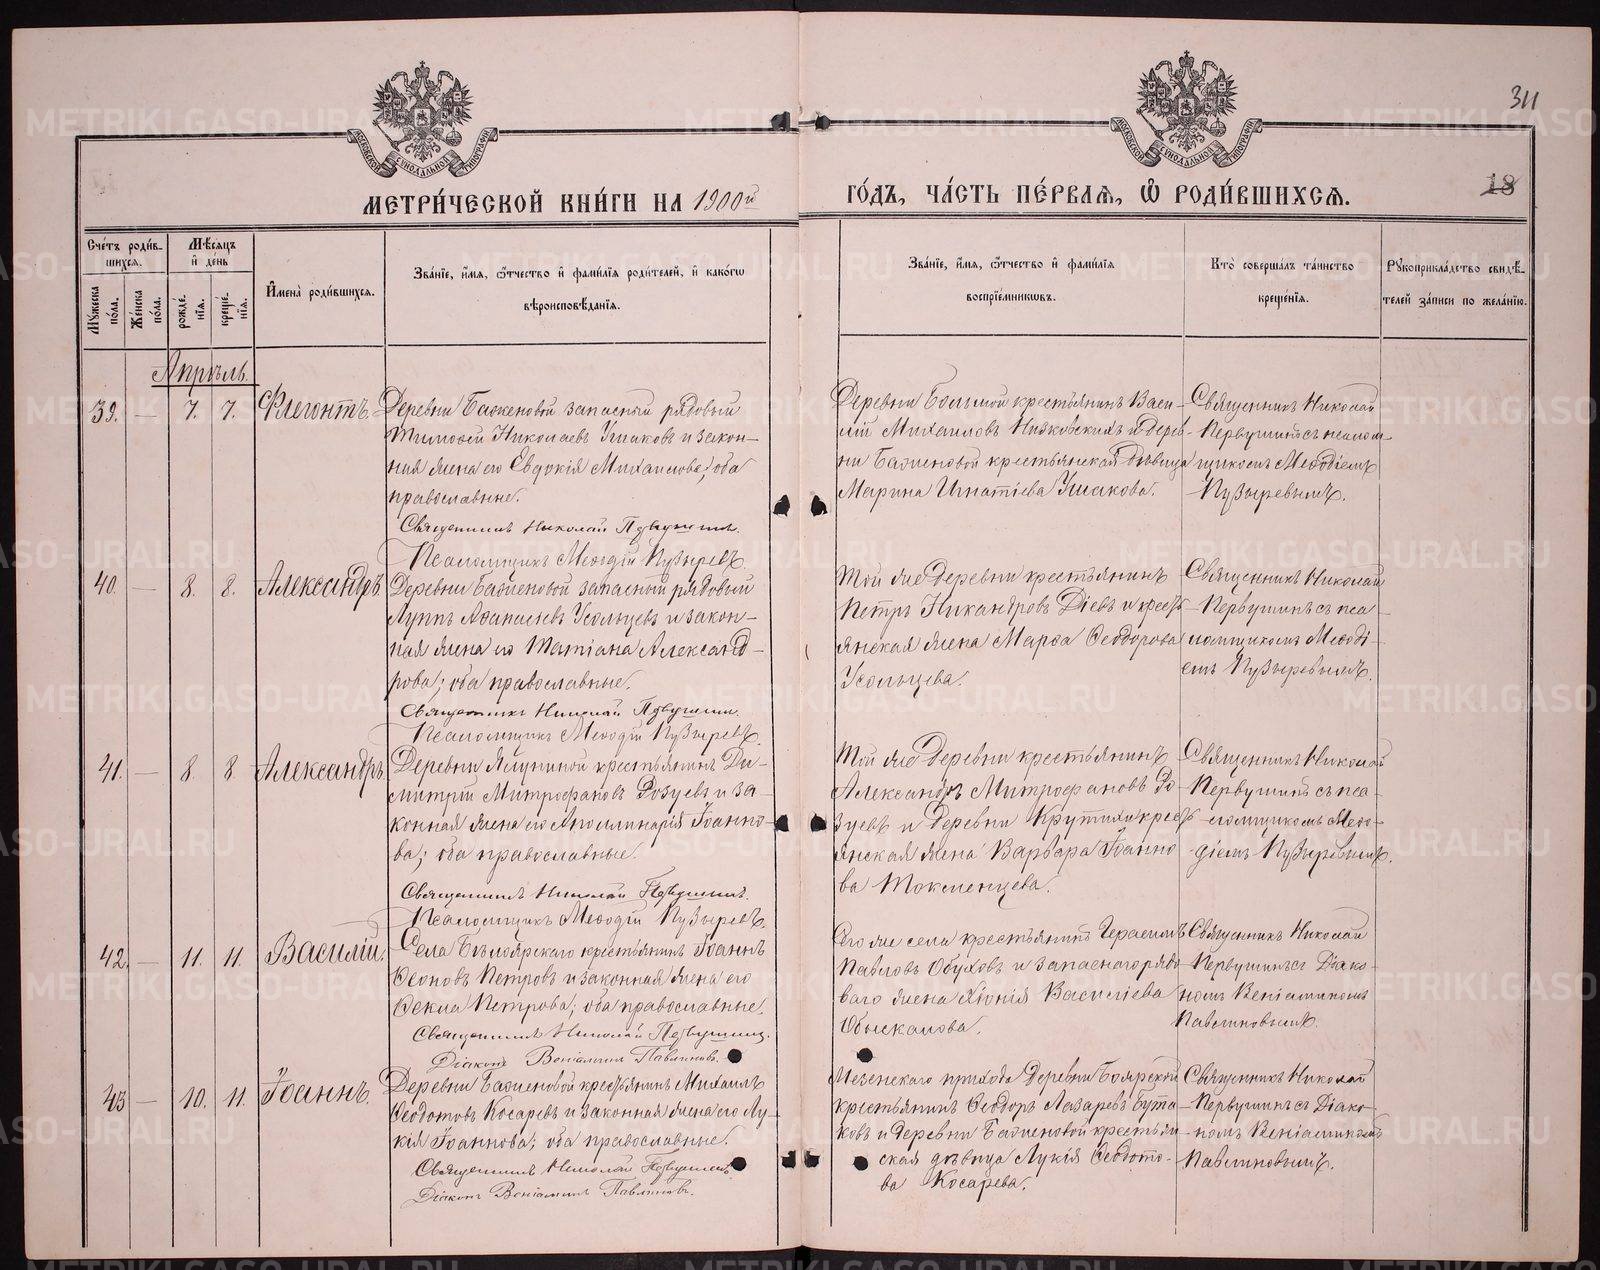 311
18
МОСКОВСКОЙ СѴНОДАЛЬНОЙ ТИПОГРАФІИ
МОСКОВСКОЙ СѴНОДАЛЬНОЙ ТИПОГРАФІИ
МЕТРИ́ЧЕСКОЙ КНИ́ГИ НА 1900й
ГО́ДЪ, ЧА́СТЬ ПЕ́РВАѦ, Ѡ҆ РОДИ́ВШИХСѦ.
Сче́тъ роди́в-
шихсѧ.
Мѣ́сѧцъ
и҆ де́нь
Мꙋ́жеска
по́ла.
Же́нска
по́ла.
рожде́-
нїѧ.
креще́-
нїѧ.
И҆мена̀ роди́вшихсѧ.
Зва́нїе, и҆́мѧ, ѻ҆́тчество и҆ фами́лїѧ роди́телей, и҆ како́гѡ
вѣроисповѣ́данїѧ.
Зва́нїе, и҆́мѧ, ѻ҆́тчество и҆ фами́лїѧ
воспрїе́мникѡвъ.
Кто̀ соверша́лъ та́инство
креще́нїѧ.
Рꙋкоприкла́дство свидѣ́-
телей за́писи по жела́нїю.
Апрѣль.
39. — 7. 7. Флегонтъ.
Деревни Баженовой запасный рядовый
Тимоѳей Николаевъ Ушаковъ и закон-
ная жена его Евдокія Михаилова; оба
православные.
Священникъ Николай Первушинъ.
Псаломщикъ Меѳодій Пузыревъ.
Деревни Большой крестьянинъ Васи-
лій Михаиловъ Низковскихъ и дерев-
ни Баженовой крестьянская дѣвица
Марина Игнатіева Ушакова.
Священникъ Николай
Первушинъ съ псалом-
щикомъ Меѳодіемъ
Пузыревымъ.
40. — 8. 8. Александръ
Деревни Баженовой запасный рядовый
Луппъ Аѳанасіевъ Усольцевъ и закон-
ная жена его Татіана Александ-
рова; оба православные.
Священникъ Николай Первушинъ.
Псаломщикъ Меѳодій Пузыревъ.
Той же деревни крестьянинъ
Петръ Никандровъ Діевъ и кресть-
янская жена Марѳа Ѳеодорова
Усольцева.
Священникъ Николай
Первушинъ съ пса-
ломщикомъ Меѳоді-
емъ Пузыревымъ.
41. — 8. 8. Александръ.
Деревни Ялуниной крестьянинъ Ди-
митрій Митрофановъ Розуевъ и за-
конная жена его Аполлинарія Іоанно-
ва; оба православные.
Священникъ Николай Первушинъ.
Псаломщикъ Меѳодій Пузыревъ.
Той же деревни крестьянинъ
Александръ Митрофановъ Ро-
зуевъ и деревни Крутихи кресть-
янская жена Варвара Іоанно
ва Токменцева.
Священникъ Николай
Первушинъ съ пса-
ломщикомъ Меѳо-
діемъ Пузыревымъ.
42. — 11. 11. Василій.
Села Бѣлоярскаго крестьянинъ Іоаннъ
Ѳеоновъ Петровъ и законная жена его
Ѳекла Петрова; оба православные.
Священникъ Николай Первушинъ.
Діаконъ Веніаминъ Павлиновъ.
Его же села крестьянинъ Герасимъ
Павловъ Обуховъ и запаснаго рядо
ваго жена Хіонія Василіева
Обыскалова.
Священникъ Николай
Первушинъ съ Діако-
номъ Веніаминомъ
Павлиновымъ.
43 — 10. 11. Іоаннъ.
Деревни Баженовой крестьянинъ Михаилъ
Ѳеодотовъ Косаревъ и законная жена его Лу-
кія Іоаннова; оба православные.
Священникъ Николай Первушинъ.
Діаконъ Веніаминъ Павлиновъ.
Мезенскаго прихода деревни Боярской
крестьянинъ Ѳеодоръ Лазаревъ Бута
ковъ и деревни Баженовой крестьян
ская дѣвица Лукія Ѳеодото-
ва Косарева.
Священникъ Николай
Первушинъ съ Діако-
номъ Веніаминомъ
Павлиновымъ.
METRIKI.GASO-URAL.RU